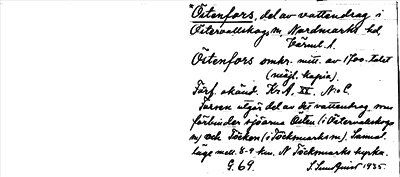 "Östenfors, del av vattendrag i
Östervallskogs sn, Nordmarks hd,
Värml. l.
Östenfors omkr. mitt. av 1700-talet
(möjl. kopia).
Förf. okänd. K. A. IX. N:o C.
Forsen utgör del av det vattendrag, som
förbinder sjöarna Östen (i Östervallskogs
sn) och Töcken (i Töcksmarks sn). Samma
läge mell. 8-9 km. N Töcksmarks kyrka.
G. 69. S. Sundqvist 1935.